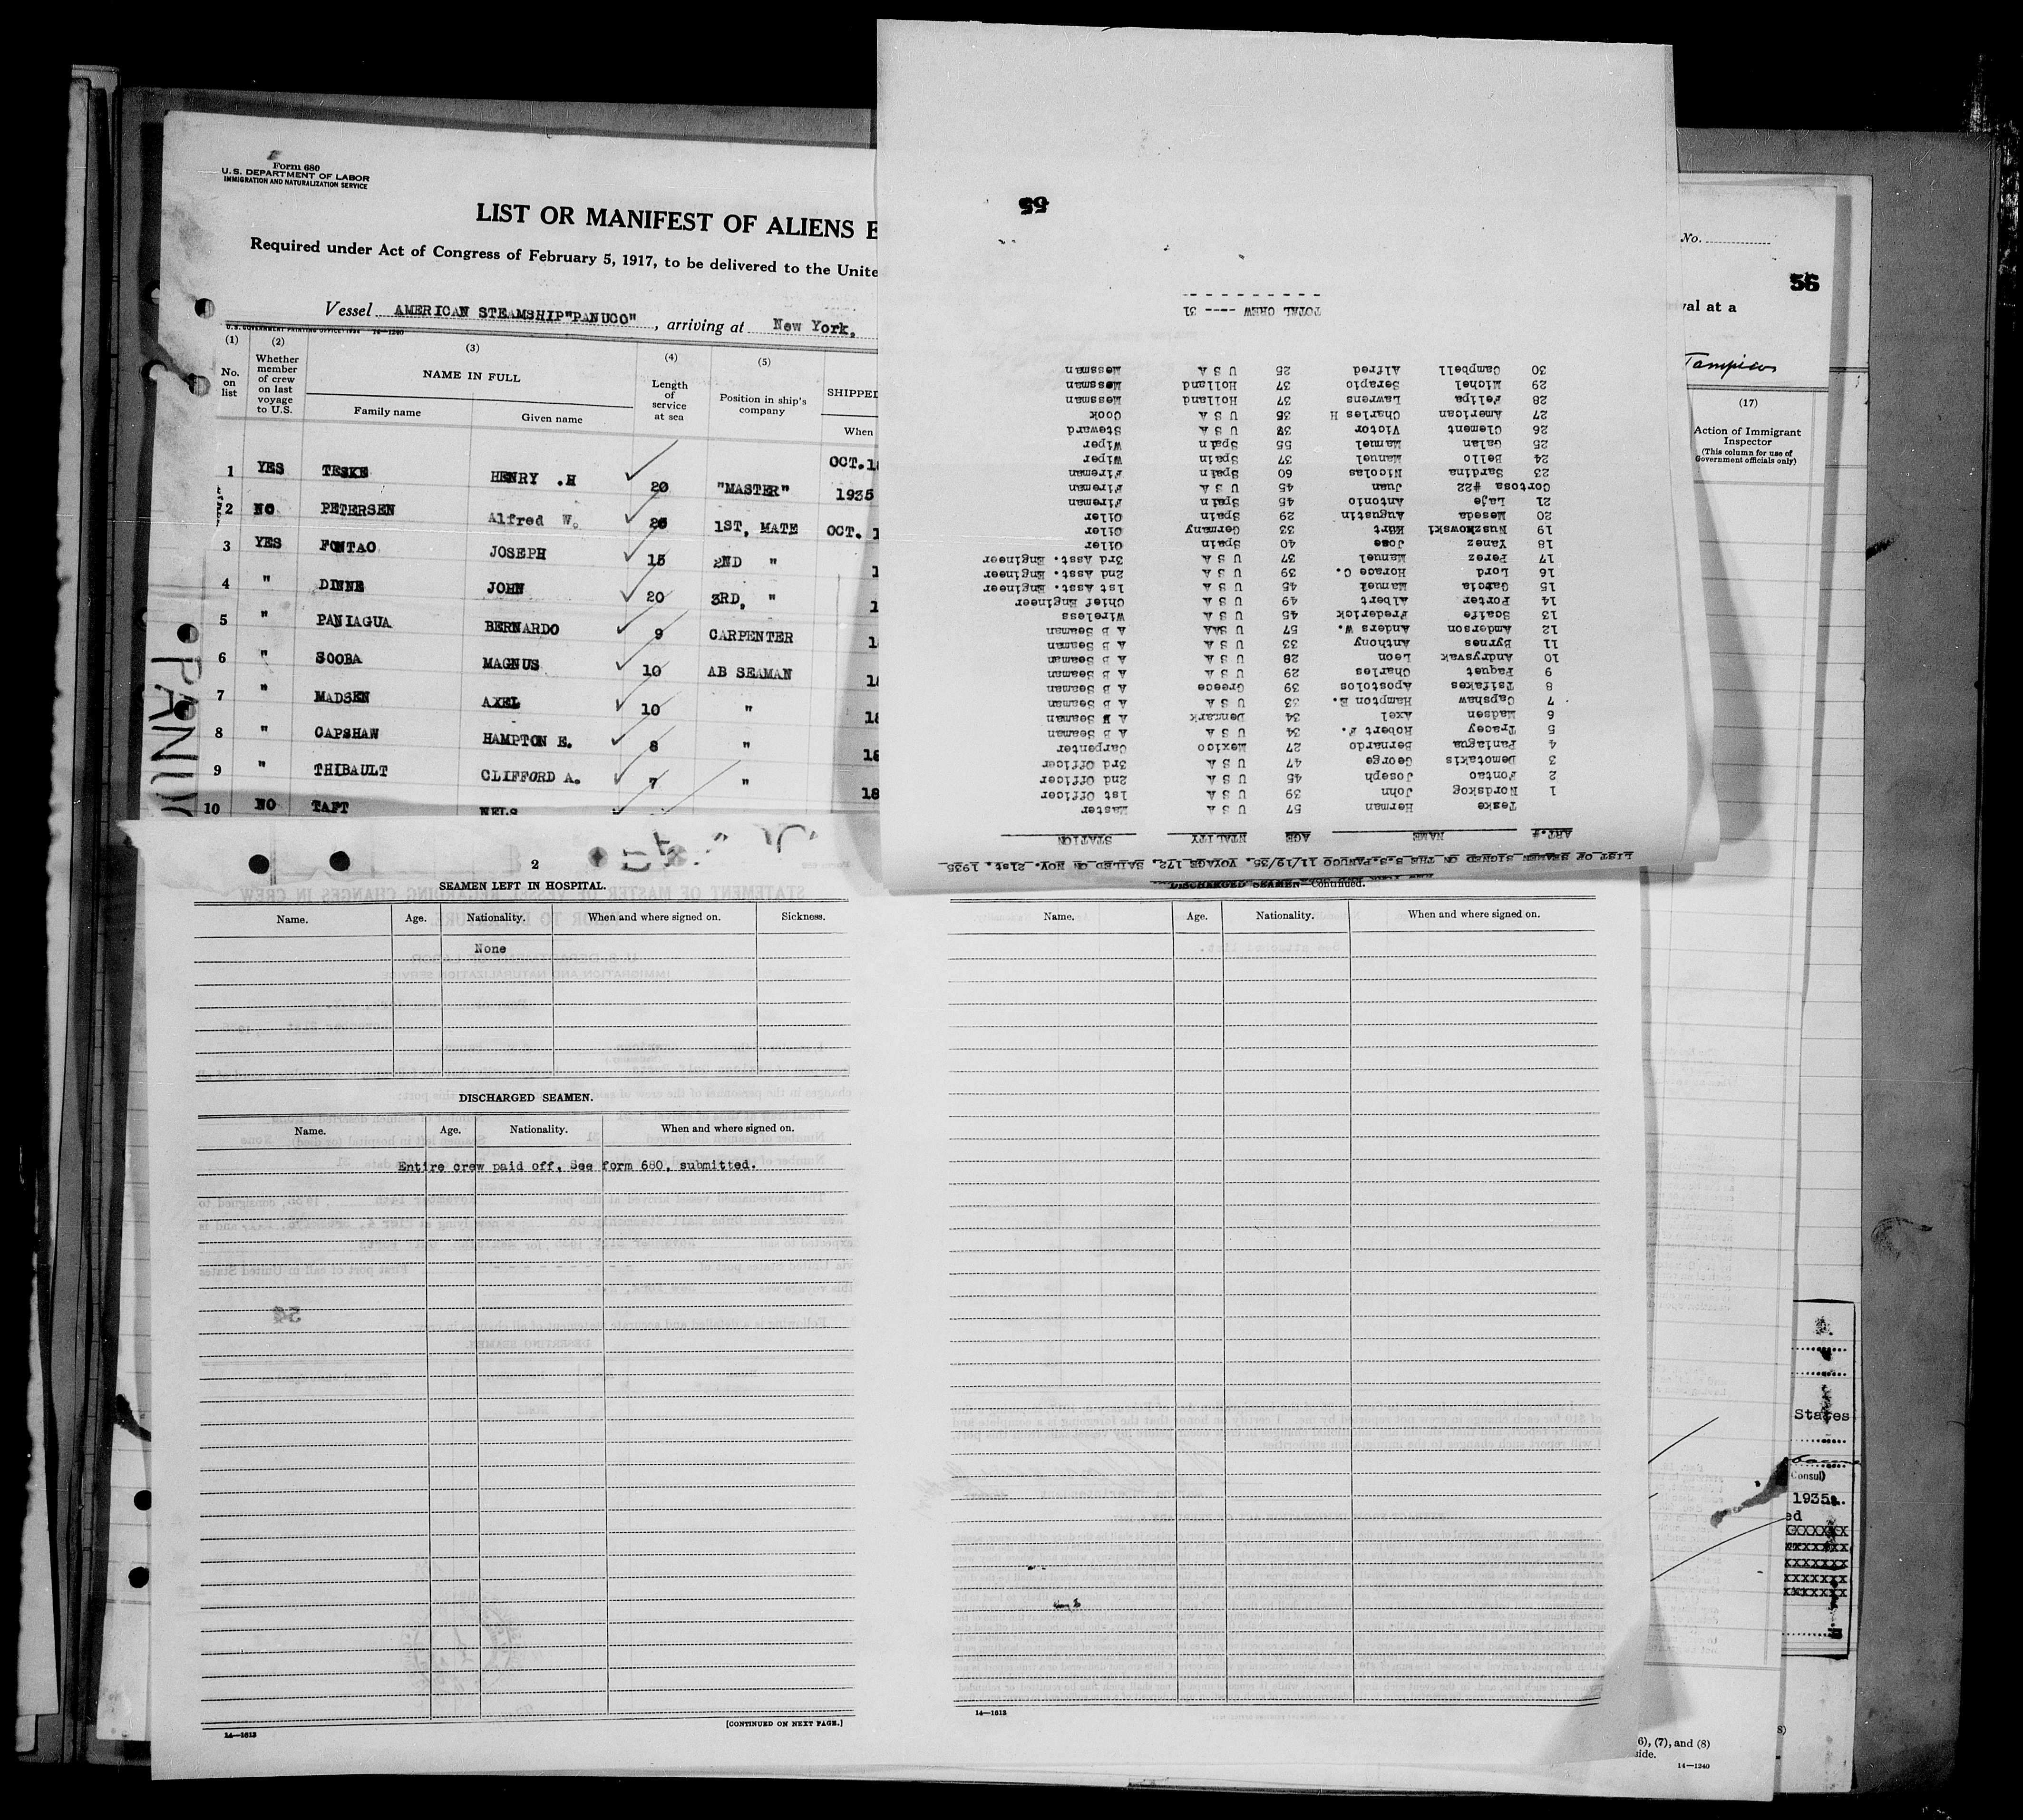 Form 680
U.S. DEPARTMENT OF LABOR
IMMIGRATION AND NATURALIZATION SERVICE
LIST OR MANIFEST OF ALIENS E
Required under Act of Congress of February 5, 1917, to be delivered to the Unite
Vessel AMERICAN STEAMSHIP "PANUCO", arriving at New York,
(1) (2) (3) (4) (5)
No. on list Whether member of crew on last voyage to U.S. NAME IN FULL Length of service at sea Position in ship's company SHIPPED
Family name Given name When
1 YES TESKE HENRY .H 20 "MASTER" OCT.18 1935
2 NO PETERSEN Alfred W. 26 1ST, MATE OCT. 1
3 YES FONTAO JOSEPH 15 2ND " 1
4 " DINNE JOHN 20 3RD, " 1
5 " PANIAGUA BERNARDO 9 CARPENTER 1
6 " SOOBA MAGNUS 10 AB SEAMAN 18
7 " MADSEN AXEL 10 " 18
8 " CAPSHAW HAMPTON E. 8 " 18
9 " THIBAULT CLIFFORD A. 7 " 18
10 NO TAFT NELS
PANU
LIST OF SEAMEN SIGNED ON THE S.S.PANUCO 11/19/35. VOYAGE 172. SAILED ON NOV. 21st. 1935
ART.# NAME AGE NTALITY STATION
Teske Herman 57 U S A Master
1 Nordskog John 39 U S A 1st Officer
2 Fontao Joseph 45 U S A 2nd Officer
3 Demotakis George 47 U S A 3rd Officer
4 Paniagua Bernardo 27 Mexico Carpenter
5 Tracey Robert F. 34 U S A A B Seaman
6 Madsen Axel 34 Denmark A B Seaman
7 Capshaw Hampton E. 33 U S A A B Seaman
8 Tsifakes Apostolos 39 Greece A B Seaman
9 Paquet Charles 29 U S A A B Seaman
10 Andrysvak Leon 28 U S A A B Seaman
11 Byrnes Anthony 33 U S A A B Seaman
12 Anderson Anders W. 57 U SAA A B Seaman
13 Scaife Frederick 45 U S A Wireless
14 Porter Albert 49 U S A Chief Engineer
15 Garcia Manuel 45 U S A 1st Asst. Engineer
16 Lord Horace C. 39 U S A 2nd Asst. Engineer
17 Perez Manuel 37 U S A 3rd Asst. Engineer
18 Yanez Jose 40 Spain Oiler
19 Nuszkowski Kurt 33 Germany Oiler
20 Meseda Augustin 29 Spain Oiler
21 Laje Antonio 45 Spain Fireman
Cortosa #22 Juan 45 U S A Fireman
23 Sardina Nicolas 60 Spain Fireman
24 Bello Manuel 37 Spain Wiper
25 Galan Manuel 55 Spain Wiper
26 Clement Victor 37 U S A Steward
27 American Charles H 35 U S A Cook
28 Felipa Lawrens 37 Holland Messman
29 Michel Serapio 37 Holland Messman
30 Campbell Alfred 25 U S A Messman
TOTAL CREW ---- 31
55
No.
56
val at a
Tampico
(17)
Action of Immigrant Inspector
(This column for use of Government officials only)
2
SEAMEN LEFT IN HOSPITAL.
Name. Age. Nationality. When and where signed on. Sickness.
None
DISCHARGED SEAMEN.
Name. Age. Nationality. When and where signed on.
Entire crew paid off. See form 680, submitted.
54
14—1613
[CONTINUED ON NEXT PAGE.]
DISCHARGED SEAMEN—Continued.
Name. Age. Nationality. When and where signed on.
14—1613
States
Consul
1935
ed
6), (7), and (8)
side.
14—1240